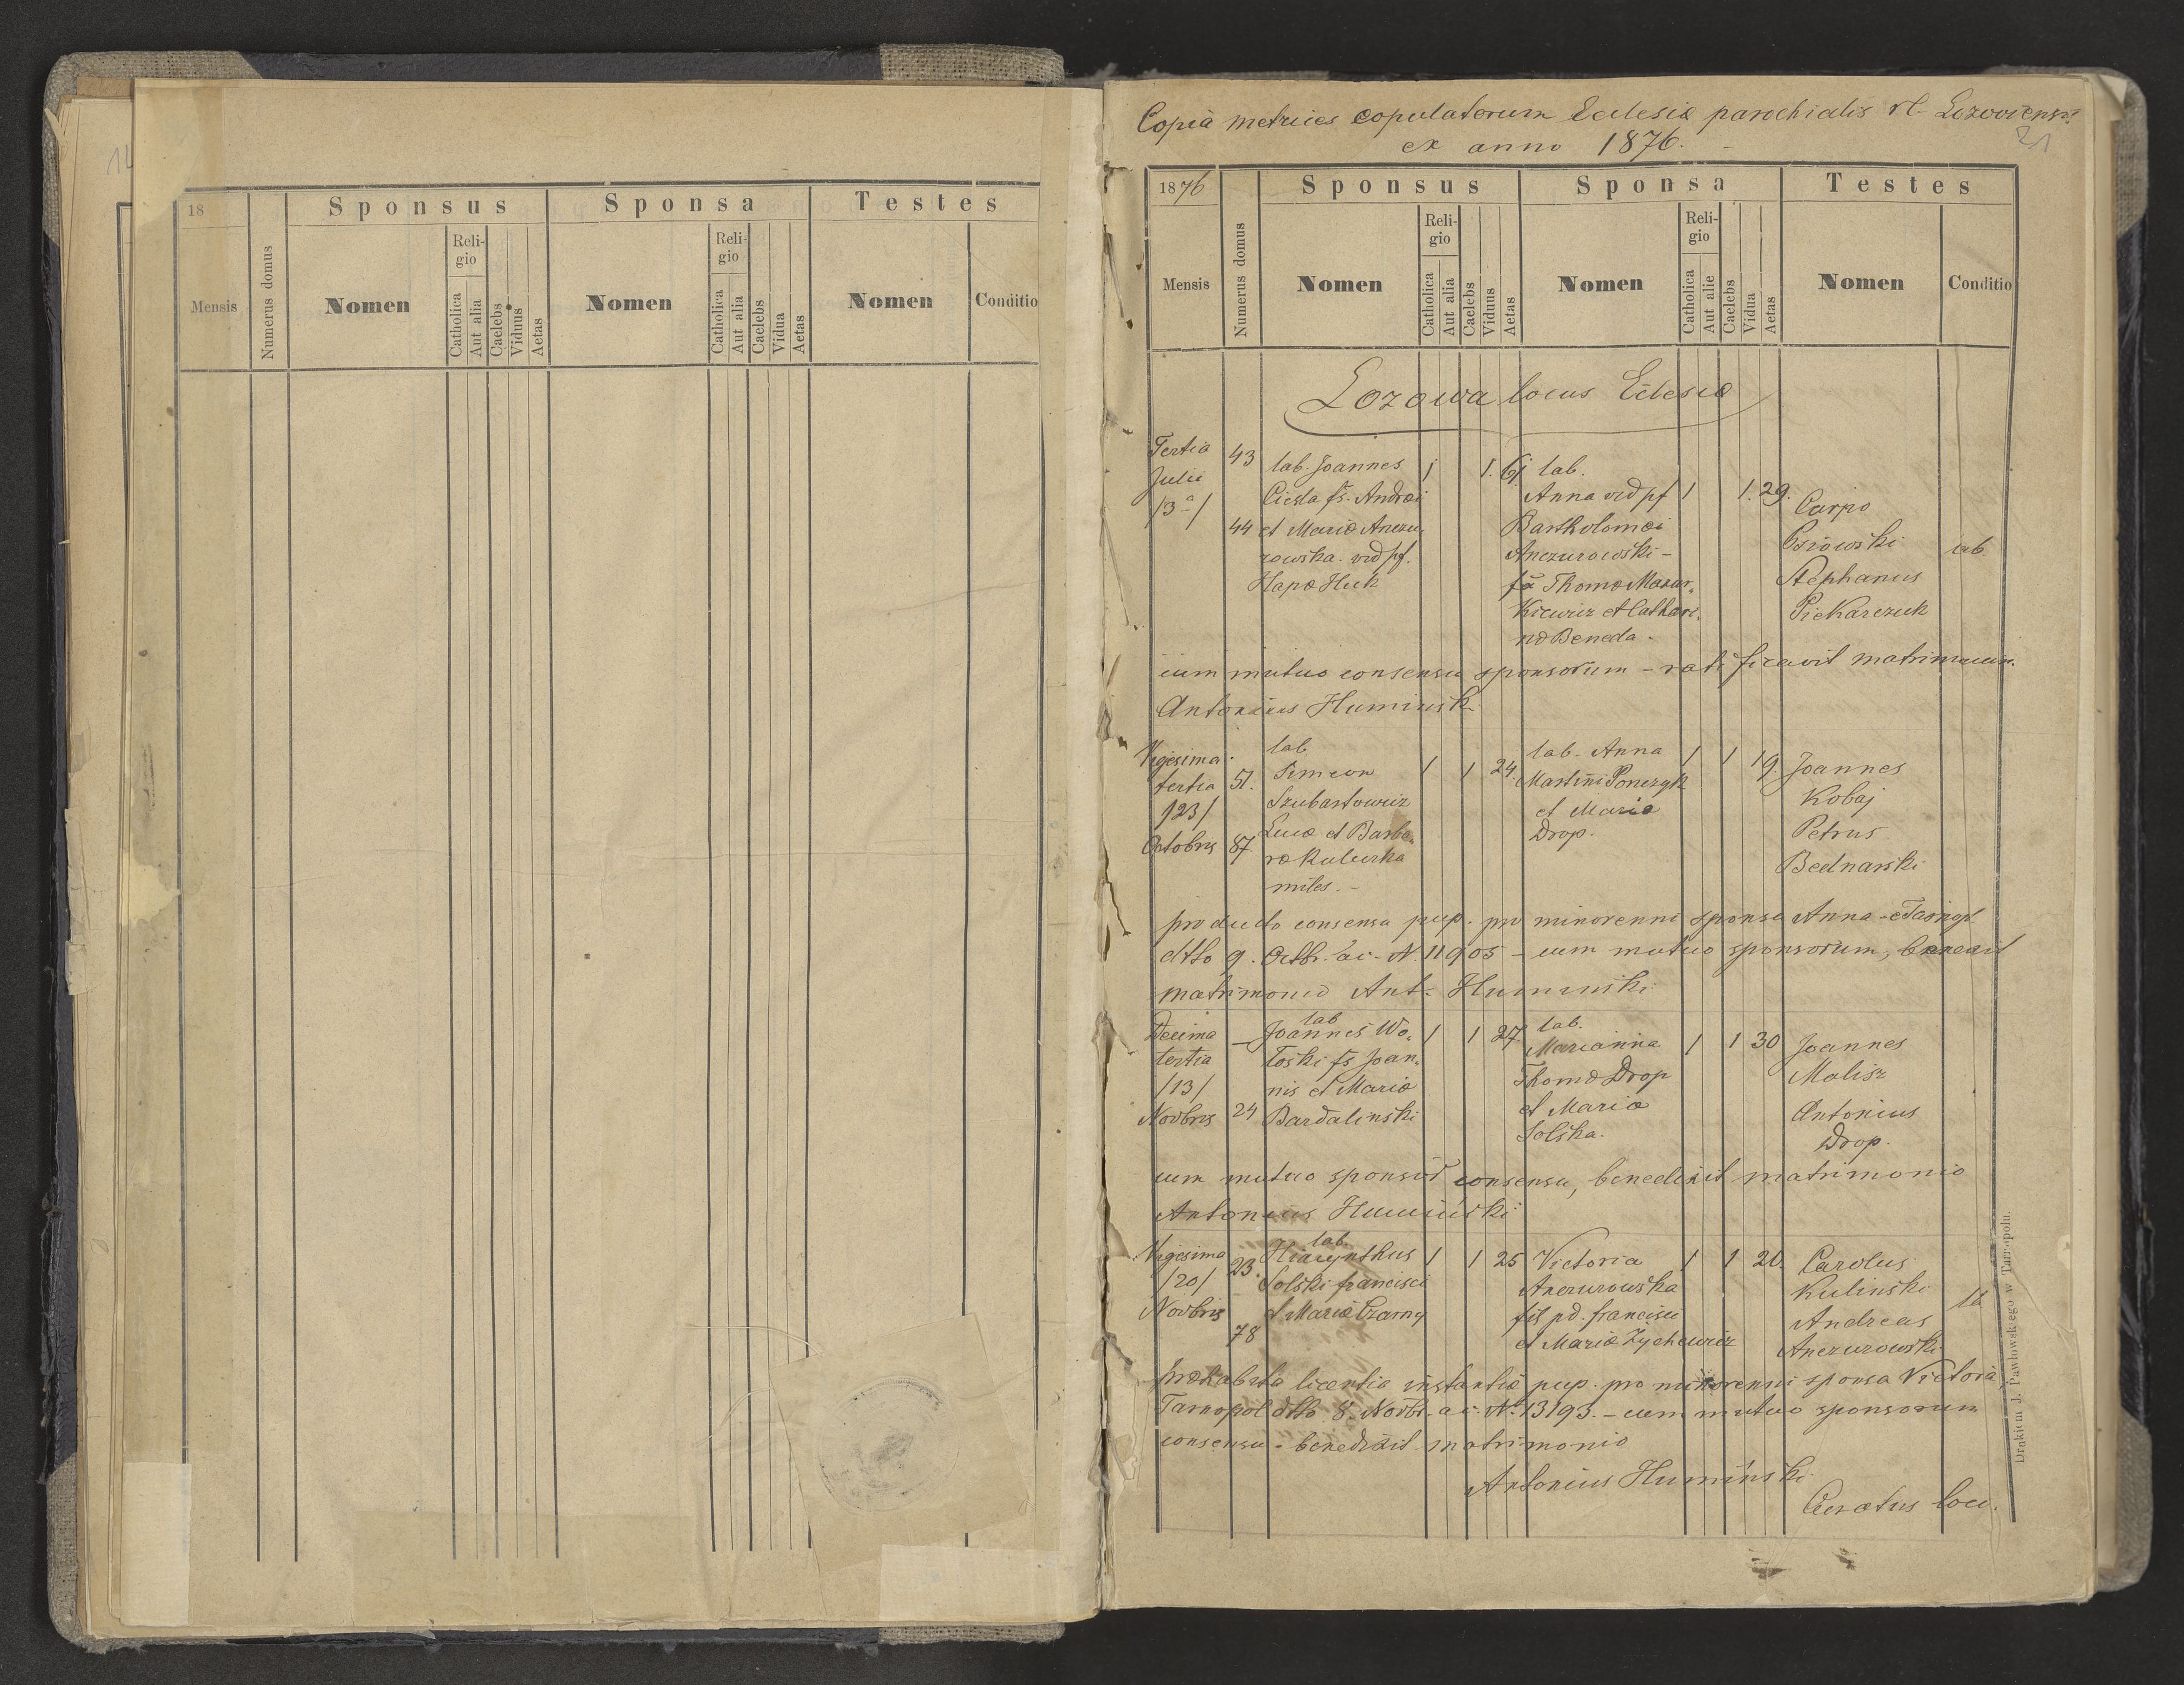 18
Sponsus
Sponsa
Testes
Mensis
Numerus domus
Nomen
Religio
Catholica
Aut alia
Caelebs
Viduus
Aetas
Nomen
Religio
Catholica
Aut alia
Caelebs
Vidua
Aetas
Nomen
Conditio
Copia metrices copulatorum Eclesiæ parochialis rl. Lozoviensis
ex anno 1876.
21
1876
Sponsus
Sponsa
Testes
Mensis
Numerus domus
Nomen
Religio
Catholica
Aut alia
Caelebs
Viduus
Aetas
Nomen
Religio
Catholica
Aut alie
Caelebs
Vidua
Aetas
Nomen
Conditio
Lozowa locus Eclesiæ
Tertia
Julii
/3a/
43
44
lab. Joannes
Ciesla fs. Andræi
et Mariæ Anczu
rowska. vid pf.
Hapæ Huk
1 1. 61
lab.
Anna vid pf
Bartholomæi
Anczurowski -
fa Thomæ Mazur
kiewicz et Cathari
næ Beneda.
1 1. 29.
Carpo
Osiowski
Stephanus
Piekarczuk
lab.
cum mutuo consensu sponsorum - ratificavit matrimonium.
Antonius Humiński
Vigesima
tertia
/23/
Octobris
51.
87
lab
Simeon
Szubartowicz
Lucæ et Barba
ræ Kulecka
miles. -
1 1 24.
lab. Anna
Martini Ponczyk
et Mariæ
Drop.
1 1 19.
Joannes
Kobaj
Petrus
Bednarski
producto consensu pup. pro minorenni sponsa Anna - Tarnopl
dtto 9. Octbr. ac. N. 11905 - cum mutuo sponsorum,
matrimonio Ant. Huminski
Decima
tertia
/13/
Novbris
24
lab
Joannes Wo
łoski fs Joan
nis et Mariæ
Bardalinski
1 1 27.
lab.
Marianna
Thomæ Drop
et Mariæ
Solska.
1 1 30
Joannes
Malisz
Antonius
Drop.
cum mutuo sponsor consensu, benedixit matrimonio
Antonius Humiński
Vigesima
/20/
Novbris
23.
78
lab.
Hiacynthus
Solski francisci
et Mariæ Czarny
1 1 25
Victoria
Anczurowska
fil pd. francisci
et Mariæ Zychewicz
1 1 20.
Carolus
Kulinski
Andreas
Anczurowski
præhabita licentia instantiæ pup. pro minorenni sponsa Victoria
Tarnopol dtto 8. Novbr. ac. N. 13193. - cum mutuo sponsorum
consensu - benedixit matrimonio
Antonius Humiński
Curatus loci.
Drukiem J. Pawłowskiego w Tarnopolu.